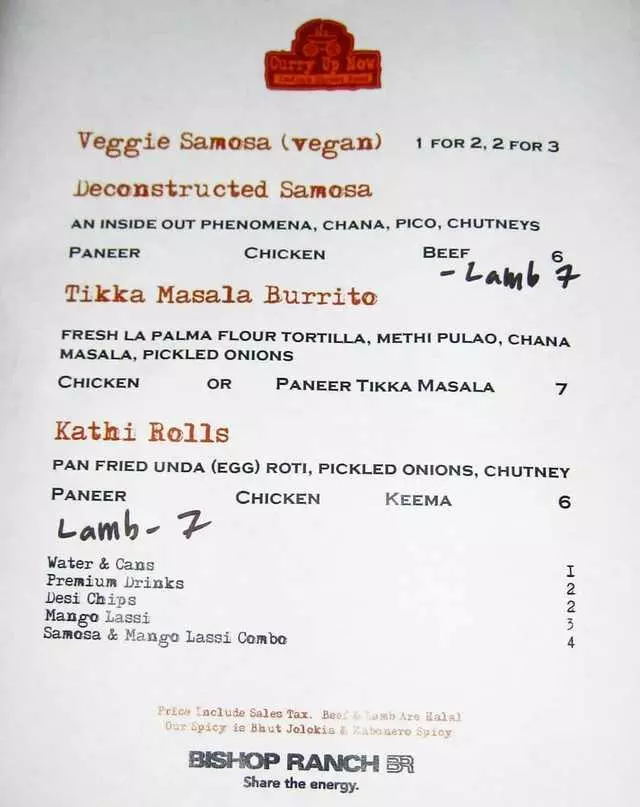 Curry Up Now
Veggie Samosa (vegan) 1 FOR 2, 2 FOR 3
Deconstructed Samosa
AN INSIDE OUT PHENOMENA, CHANA, PICO, CHUTNEYS
PANEER CHICKEN BEEF 6
-Lamb 7
Tikka Masala Burrito
FRESH LA PALMA FLOUR TORTILLA, METHI PULAO, CHANA
MASALA, PICKLED ONIONS
CHICKEN OR PANEER TIKKA MASALA 7
Kathi Rolls
PAN FRIED UNDA (EGG) ROTI, PICKLED ONIONS, CHUTNEY
PANEER CHICKEN KEEMA 6
Lamb- 7
Water & Cans 1
Premium Drinks 2
Desi Chips 2
Mango Lassi 3
Samosa & Mango Lassi Combo 4
Price Include Sales Tax. Beef & Lamb Are Halal
Our Spicy is Bhut Jolokia & Habonero Spicy
BISHOP RANCH BR
Share the energy.